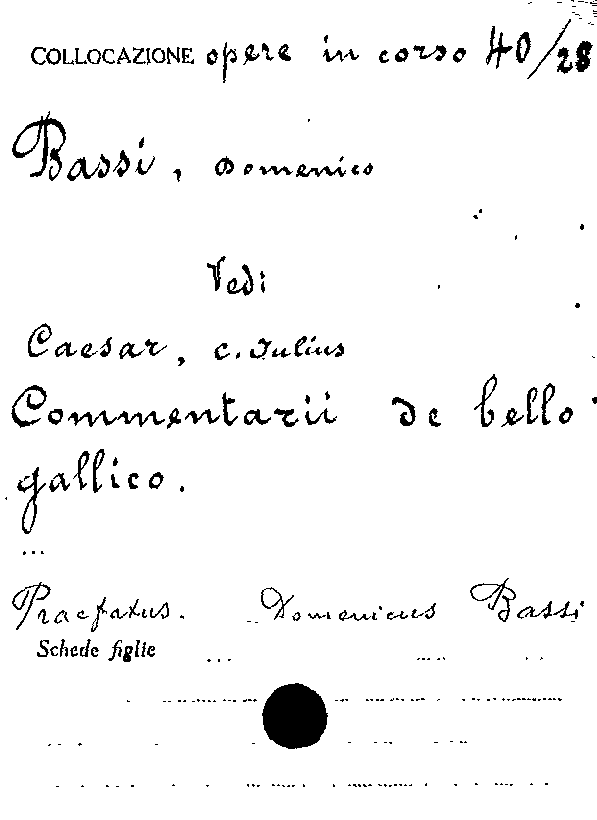 COLLOCAZIONE opere in corso 40/28
Bassi, Domenico
Vedi
Caesar, C. Iulius
Commentarii de bello
gallico.
...
Praefatus. Domenicus Bassi
Schede figlie